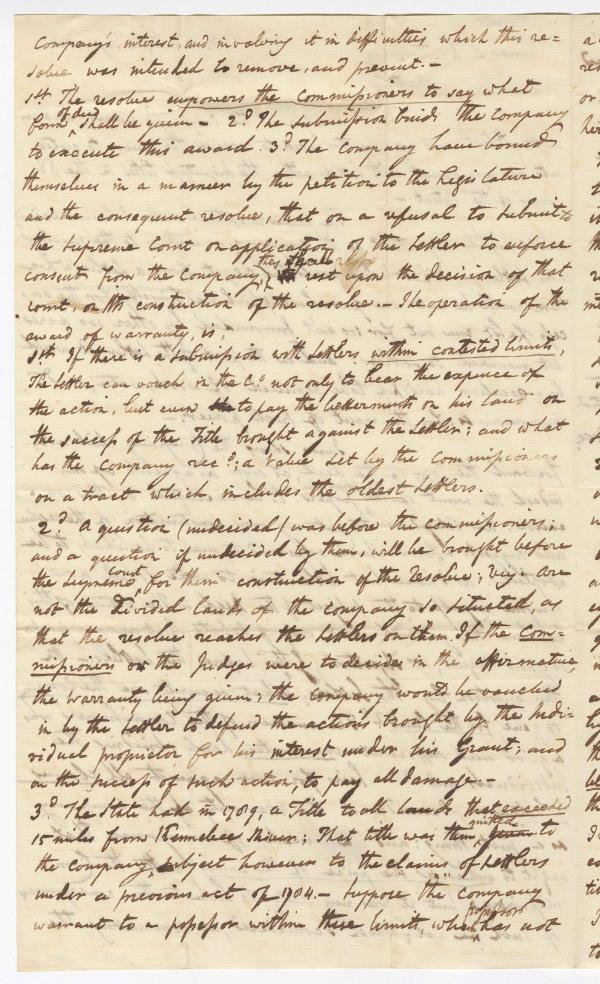 Company's interest, and involving it in difficulties which this re=
solve was intended to remove, and prevent.-
1st The resolve empowers the Commissioners to say what
form of deed shall be given - 2d The submission binds the Company
to execute this award. 3d The Company have bound
themselves in a manner by the petition to the Legislature
and the consequent resolve, that on a refusal to submit to
the supreme Court on application of the settler to enforce
consent from the Company, they shall rest upon the decision of that
court, on its construction of the resolve.- The operation of the
award of warranty, is,
1st If there is a submission with settlers within contested limits,
The settler can vouch in the Co. not only to bear the expence of
the action, but even to pay the betterments on his land on
the success of the Title brought against the settler; and what
has the Company recd; a value set by the Commissioners
on a tract which, includes the oldest settlers.
2d A question (undecided) was before the commissioners;
and a question if undecided by them, will be brought before
the supreme Court for their construction of the resolve; viz. are
not the Divided lands of the company so situated, as
that the resolve reaches the settlers on them. If the Com=
missioners or the Judges were to decide in the affirmative,
the warranty being given; the company would be vouched
in by the settler to defend the actions brought by the Indi=
vidual proprietor for his interest under his Grant; and
on the success of such action, to pay all damage.-
3d The State had in 1789, a Title to all lands that exceeded
15 miles from Kennebec River; That title was then quitted to
the company, subject however to the claims of settlers
under a previous act of 1784.- Suppose "the" company
warrant to a possessor within these limits, which possessor has not